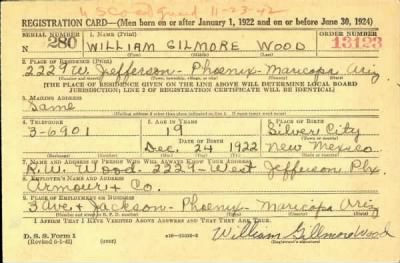 U.S. Coast Guard 11-23-42
REGISTRATION CARD—(Men born on or after January 1, 1922 and on or before June 30, 1924)
SERIAL NUMBER 1. NAME (Print) ORDER NUMBER
280 WILLIAM GILMORE WOOD 13123
2. PLACE OF RESIDENCE (Print)
2229 W. Jefferson - Phoenix - Maricopa Ariz
[THE PLACE OF RESIDENCE GIVEN ON THE LINE ABOVE WILL DETERMINE LOCAL BOARD
JURISDICTION; LINE 2 OF REGISTRATION CERTIFICATE WILL BE IDENTICAL]
3. MAILING ADDRESS
Same
4. TELEPHONE 5. AGE IN YEARS 6. PLACE OF BIRTH
3-6901 19 Silver City
DATE OF BIRTH
Dec. 24 1922 New Mexico
7. NAME AND ADDRESS OF PERSON WHO WILL ALWAYS KNOW YOUR ADDRESS
R.W. Wood - 2229 - West Jefferson Phx.
8. EMPLOYER'S NAME AND ADDRESS
Armour + Co.
9. PLACE OF EMPLOYMENT OR BUSINESS
3 Ave + Jackson - Phoenix - Maricopa Ariz
I AFFIRM THAT I HAVE VERIFIED ABOVE ANSWERS AND THAT THEY ARE TRUE.
D. S. S. Form 1
William Gillmore Wood